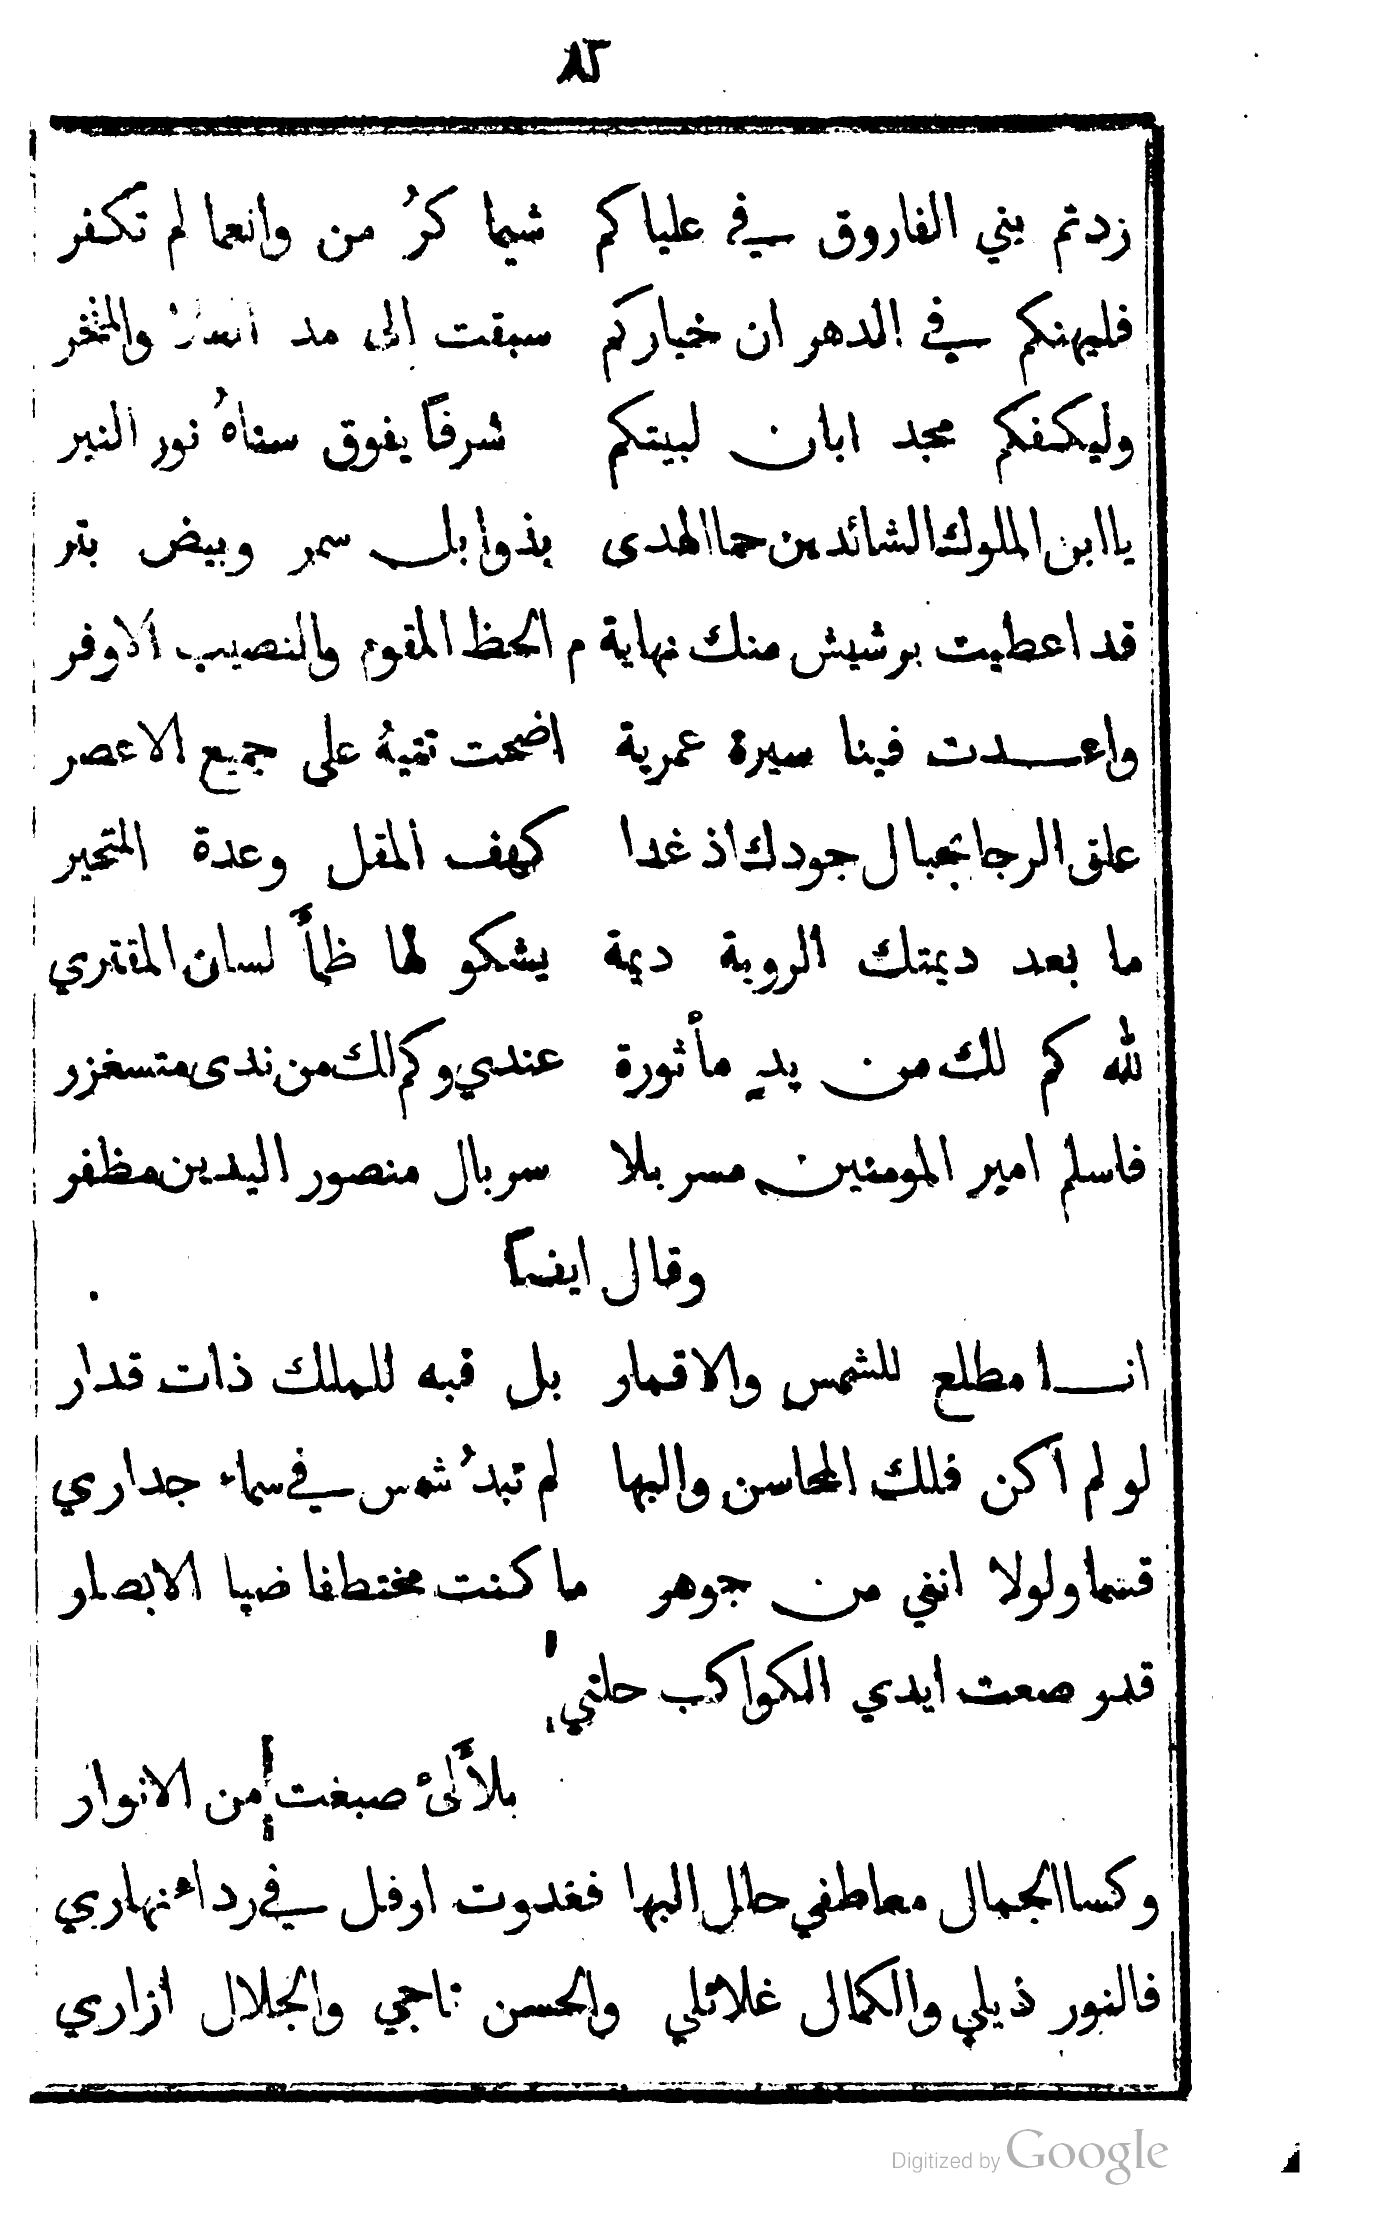 ٨٢
زدتم بني الفاروق في علياكم شيما كرُ من وانعما لم تكفر
فليهنكم في الدهر ان خياركم سبقت الى مد والمتخر
وليكفكم مجد ابان لبيتكم شرفاً يفوق سناهُ نور النير
يا ابن الملوك الشائدين حما الهدى بذوابل سمر وبيض بتر
قد اعطيت برشيش منك نهاية م الحظ المقوم والنصيب الاوفر
واعدت فينا سيرة عمرية اضحت تتيهُ على جميع الاعصر
علق الرجا بحبال جودك اذ غدا كهف المقل وعدة المتحير
ما بعد ديمتك الروية ديمة يشكو لها ظمأً لسان المقتري
لله كم لك من يدٍ مأثورة عندي وكم لك من ندى متسغزر
فاسلم امير المومنين مسربلا سربال منصور اليدين مظفر
وقال ايضاً
انا مطلع للشمس والاقمار بل قبه للملك ذات قدار
لو لم اكن فلك المحاسن والبها لم تبدُ شمس في سماء جداري
قسما ولولا انني من جوهر ما كنت مختطفا ضيا الابصار
قد رصعت ايدي الكواكب حلتي
بلآلئ صبغت من الانوار
وكسا الجمال معاطفي حلل البها فغدوت ارفل في رداء نهاري
فالنور ذيلي والكمال غلائلي والحسن تاجي والجلال ازاري
Digitized by Google